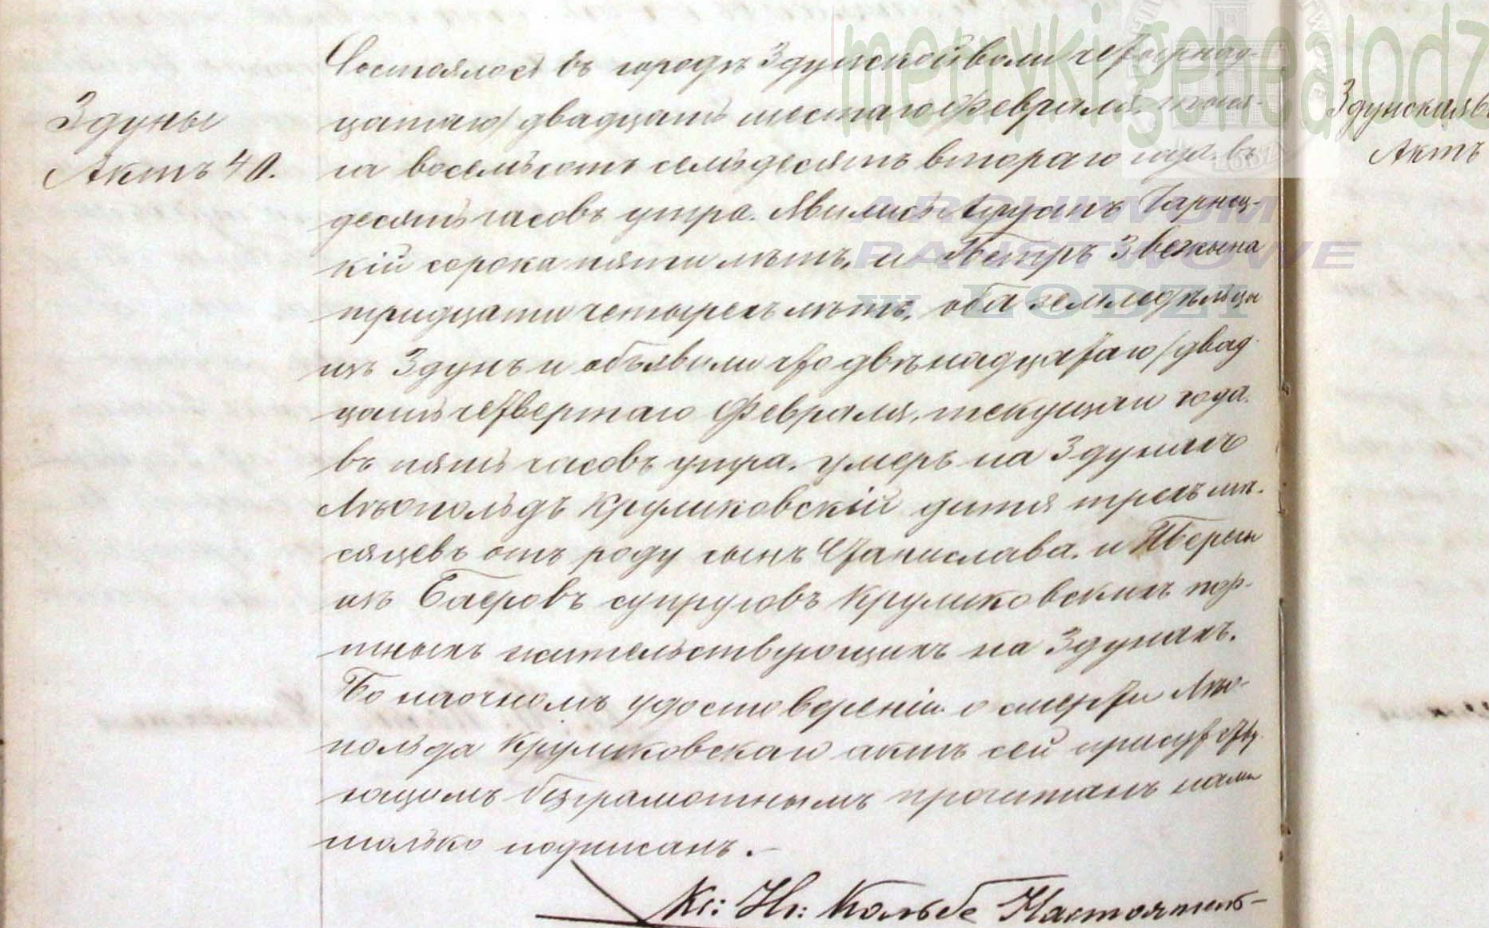 Состоялось въ городѣ Здунскойволи четырнад-
цатаго/двадцать шестаго Февраля тыся-
ча восемьсотъ семьдесятъ втораго года въ
десять часовъ утра. Явились
кій сорока пяти лѣтъ, и Петръ
тридцати четырехъ лѣтъ, оба земледѣльцы
изъ Здунъ и объявили что двѣнадцатаго/двад-
цать четвертаго Февраля, текущаго года
въ пять часовъ утра. умеръ на Здунахъ
Лѣопольдъ Круликовскій дитя трехъ мѣ-
сяцевъ отъ роду сынъ Станислава. и
изъ супруговъ Круликовскихъ пор-
тныхъ жительствующихъ на Здунахъ.
По наочномъ удостовереніи о смерти Лѣо-
польда Круликовскаго актъ сей присутству-
ющимъ безграмотнымъ прочитанъ нами
только подписанъ.-
Кс: Кольбе Настоятель-
Здуны
Актъ 40.
Здунская
Актъ
metryki.genealodz
ARCHIWUM
PAŃSTWOWE
w ŁODZI